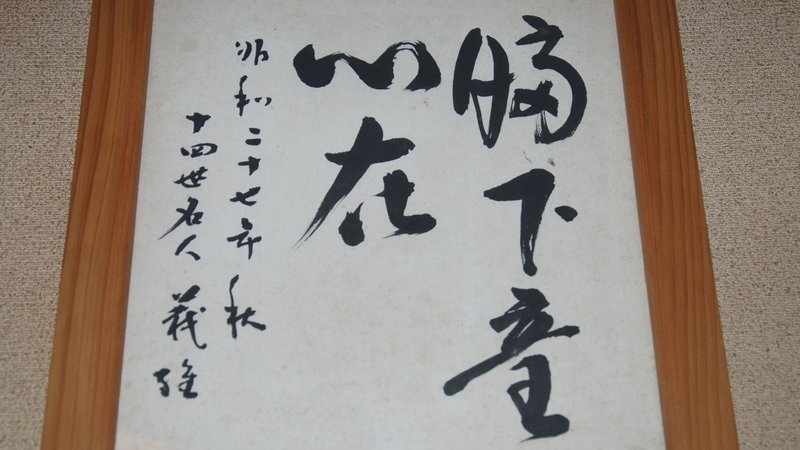 臍下童
心在
昭和二十七年 秋
十四世名人 義雄